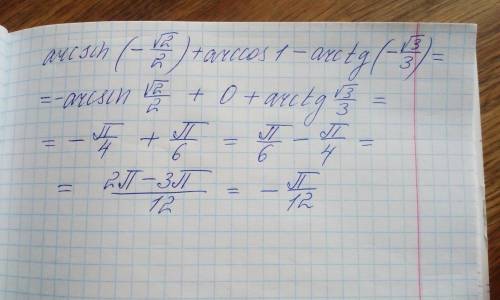 arcsin(-√2/2)+arccos1-arctg(-√3/3)=
=-arcsin √2/2 + 0 + arctg √3/3 =
= - π/4 + π/6 = π/6 - π/4 =
= (2π-3π)/12 = - π/12